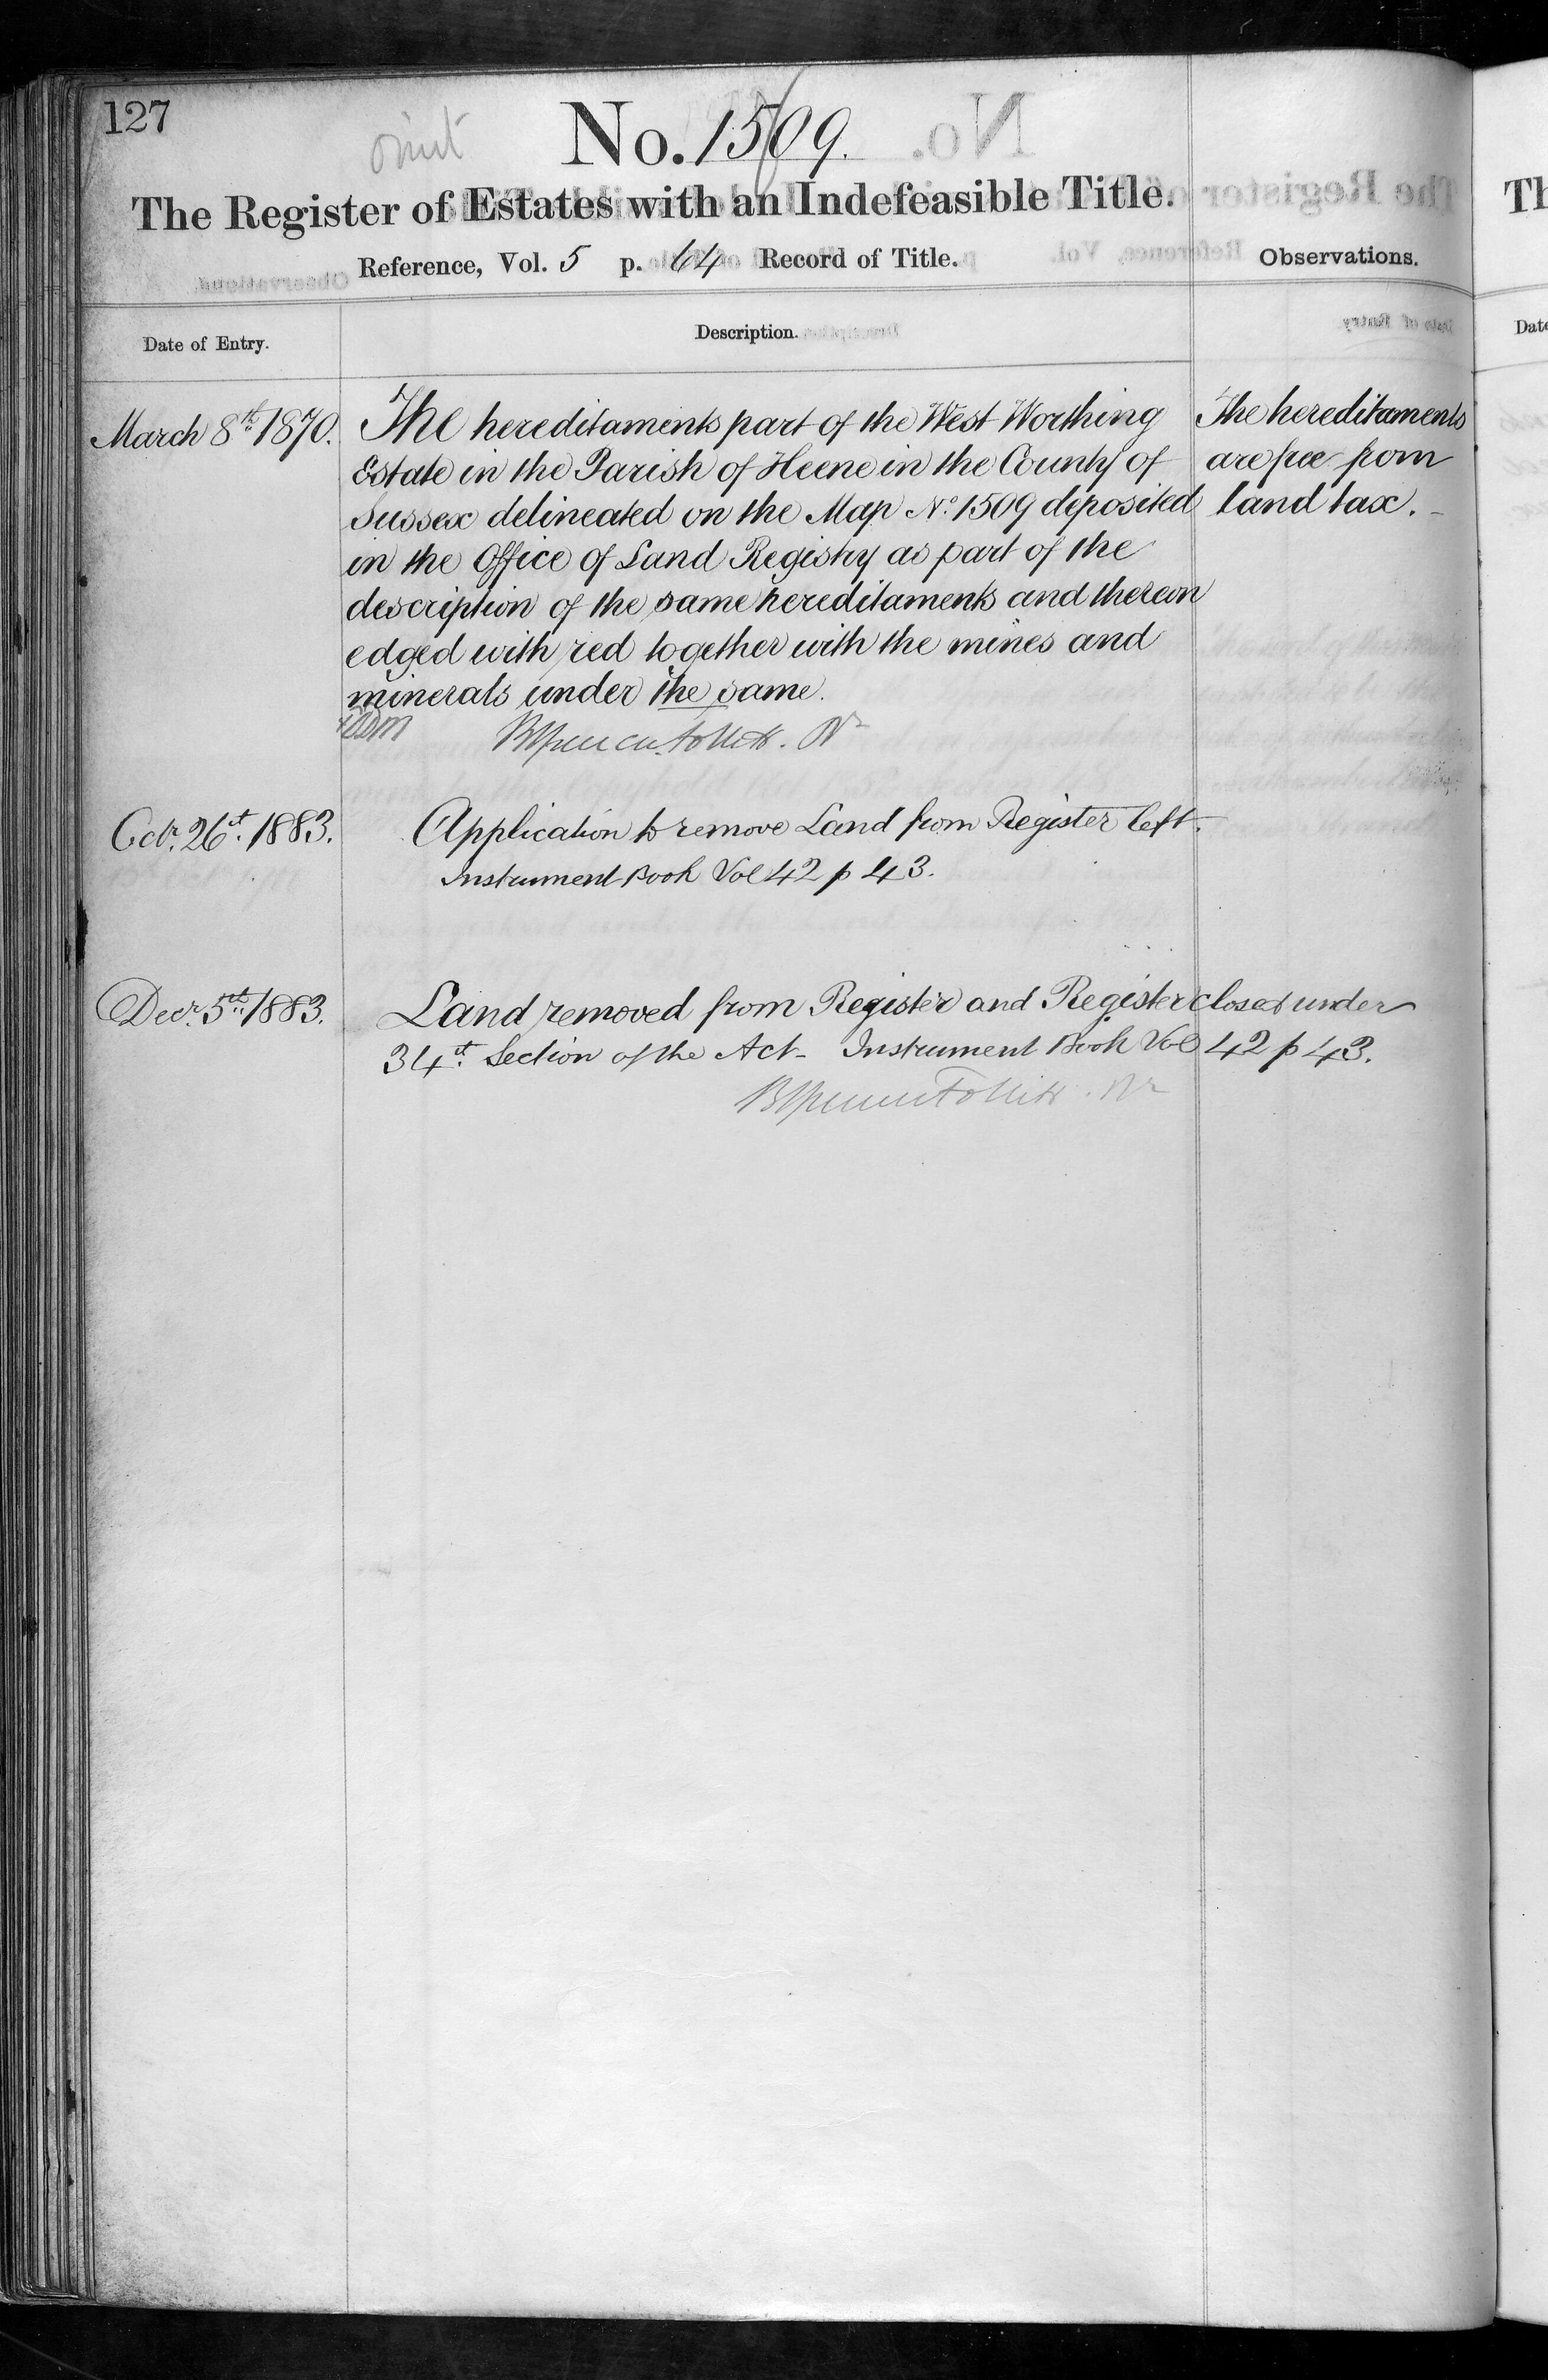 127
omit
No. 1509.
The Register of Estates with an Indefeasible Title.
Reference, Vol. 5 p. 64 Record of Title.
Observations.
Date of Entry.
Description.
March 8th 1870.
The hereditaments part of the West Worthing
Estate in the Parish of Heene in the County of
Sussex delineated on the Map No. 1509 deposited
in the Office of Land Registry as part of the
description of the same hereditaments and thereon
edged with red together with the mines and
minerals under the same.
The hereditaments
are free from
land tax.
Octr. 26t. 1883.
Application to remove Land from Register left.
Instrument Book Vol 42 p 43.
Decr. 5th 1883.
Land removed from Register and Register closed under
34t. Section of the Act - Instrument Book Vol 42 p 43.